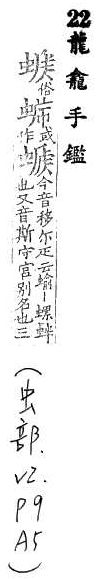 22龍龕手鑑
螔俗蝷或作螔今音移尔疋云蝓—螺蚌也又音斯守宮別名也三
(虫部.v2.p9A5)